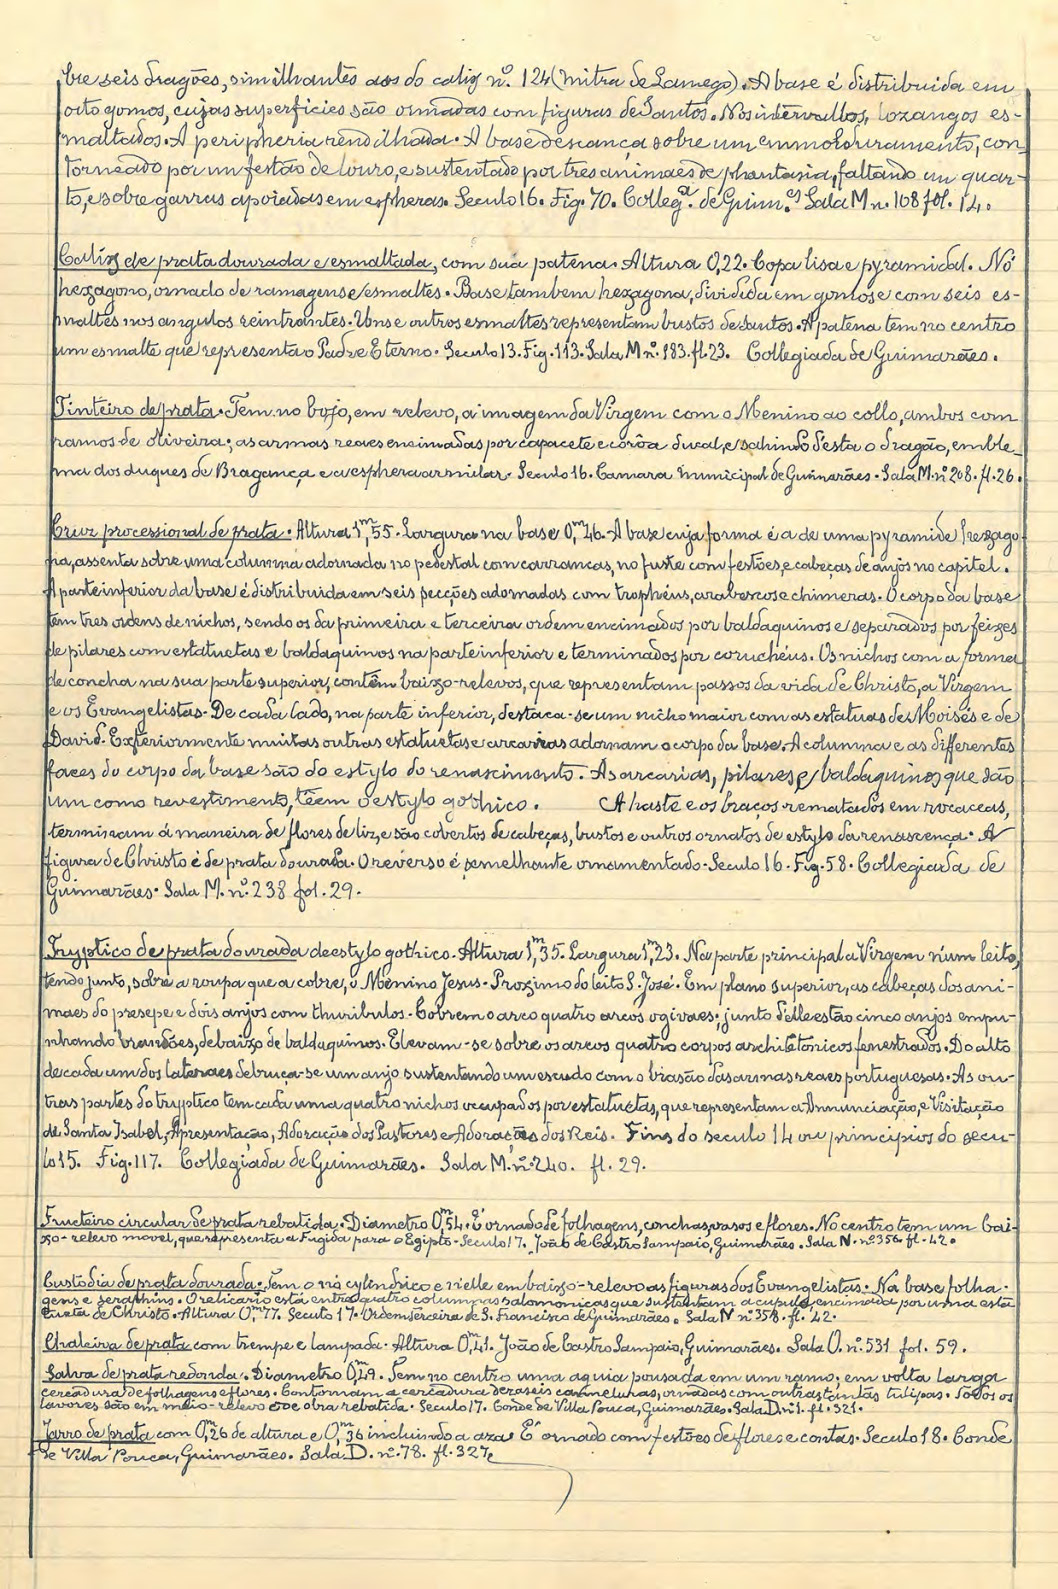 bre seis dragões, similhantes aos do calix nº. 124 (Mitra de Lamego). A base é distribuida em
oito gomos, cujas superficies são ornadas com figuras de Santos. Nos intervallos, lozangos es-
maltados. A peripheria rendilhada. A base descança sobre um emmolduramento, con-
torneado por um festão de louro, e sustentado por tres animaes de phantasia, faltando um quar-
to, e sobre garras apoiadas em espheras. Seculo 16. Fig. 70. Colleg.ª de Guim.es Sala M n. 108 fol. 14.
Calix de prata dourada e esmaltada, com sua patena. Altura 0,22. Copa lisa e pyramidal. Nó
hexagono, ornado de ramagens e esmaltes. Base tambem hexagona, dividida em gomos e com seis es-
maltes nos angulos reintrantes. Uns e outros esmaltes representam bustos de Santos. A patena tem no centro
um esmalte que representa o Padre Eterno. Seculo 13. Fig. 113. Sala M nº. 183. fl. 23. Collegiada de Guimarães.
Tinteiro de prata. Tem no bojo, em relevo, a imagem da Virgem com o Menino ao collo, ambos com
ramos de oliveira; as armas reaes encimadas por capacete e corôa ducal, e sahindo d'esta o dragão, emble-
ma dos duques de Bragança e a esphera armilar. Seculo 16. Camara Municipal de Guimarães. Sala M. nº 208. fl. 26.
Cruz processional de prata. Altura 1,m55. Largura na base 0,m46. A base cuja forma é a de uma pyramide hexago
na, assenta sobre uma columna adornada no pedestal com carrancas, no fuste com festões, e cabeças de anjos no capitel.
A parte inferior da base é distribuida em seis secções adornadas com trophéus, arabescos e chimeras. O corpo da base
tem tres ordens de nichos, sendo os da primeira e terceira ordem encimados por baldaquinos e separados por feixes
de pilares com estatuetas e baldaquinos na parte inferior e terminados por coruchéus. Os nichos com a forma
de concha na sua parte superior, contêm baixo-relevos, que representam passos da vida de Christo, a Virgem
e os Evangelistas. De cada lado, na parte inferior, destaca-se um nicho maior com as estatuas de Moisés e de
David. Exteriormente muitas outras estatuetas e arcarias adornam o corpo da base. A columna e as differentes
faces do corpo da base são do estylo do renascimento. As arcarias, pilares e baldaquinos que são
um como revestimento, têem o estylo gothico. A haste e os braços rematados em rocaceas,
terminam á maneira de flores de liz, e são cobertos de cabeças, bustos e outros ornatos de estylo da renascença. A
figura de Christo é de prata dourada. O reverso é semelhante ornamentado. Seculo 16. Fig. 58. Collegiada de
Guimarães. Sala M. nº. 238 fol. 29.
Tryptico de prata dourada de estylo gothico. Altura 1,m35. Largura 1,m23. Na parte principal a Virgem n'um leito,
tendo junto, sobre a roupa que a cobre, o Menino Jesus. Proximo do leito S. José. Em plano superior, as cabeças dos ani-
maes do presepe e dois anjos com thuribulos. Cobrem o arco quatro arcos ogivaes; junto d'elle estão cinco anjos empu-
nhando brandões, debaixo de baldaquinos. Elevam-se sobre os arcos quatro corpos architetonicos fenestrados. Do alto
de cada um dos lateraes debruça-se um anjo sustentando um escudo com o brasão das armas reaes portuguesas. As ou-
tras partes do tryptico tem cada uma quatro nichos occupados por estatuetas, que representam a Annunciação, e Visitação
de Santa Isabel, Apresentação, Adoração dos Pastores e Adorações dos Reis. Fins do seculo 14 ou principios do secu-
lo 15. Fig. 117. Collegiada de Guimarães. Sala M. nº. 240. fl. 29.
Fructeiro circular de prata rebatida. Diametro 0,54. É ornado de folhagens, conchas, vasos e flores. No centro tem um bai-
xo-relevo movel, que representa a Fugida para o Egipto. Seculo 17. João de Castro Sampaio, Guimarães. Sala N. nº. 356. fl. 42.
Custodia de prata dourada. Tem o nó cylindrico e n'elle em baixo-relevo as figuras dos Evangelistas. Na base folha-
gens e seraphins. O relicario está entre quatro columnas salomonicas que sustentam a cupula, encimada por uma está
tueta de Christo. Altura 0,m77. Seculo 17. Ordem terceira de S. Francisco de Guimarães. Sala N nº 358. fl. 42.
Chaleira de prata com trempe e lampada. Altura 0,m41. João de Castro Sampaio, Guimarães. Sala O. nº. 531 fol. 59.
Salva de prata redonda. Diametro 0,m49. Tem no centro uma aguia pousada em um ramo; em volta larga
cercadura de folhagens e flores. Contornam a cercadura dezaseis canneluras, ornadas com outras tantas tulipas. Todos os
lavores são em meio-relevo e de obra rebatida. Seculo 17. Conde de Villa Pouca, Guimarães. Sala D. nº 1. fl. 321.
Jarro de prata com 0,m26 de altura e 0,m36 incluindo a aza. É ornado com festões de flores e contas. Seculo 18. Conde
de Villa Pouca, Guimarães. Sala D. nº. 78. fl. 327.